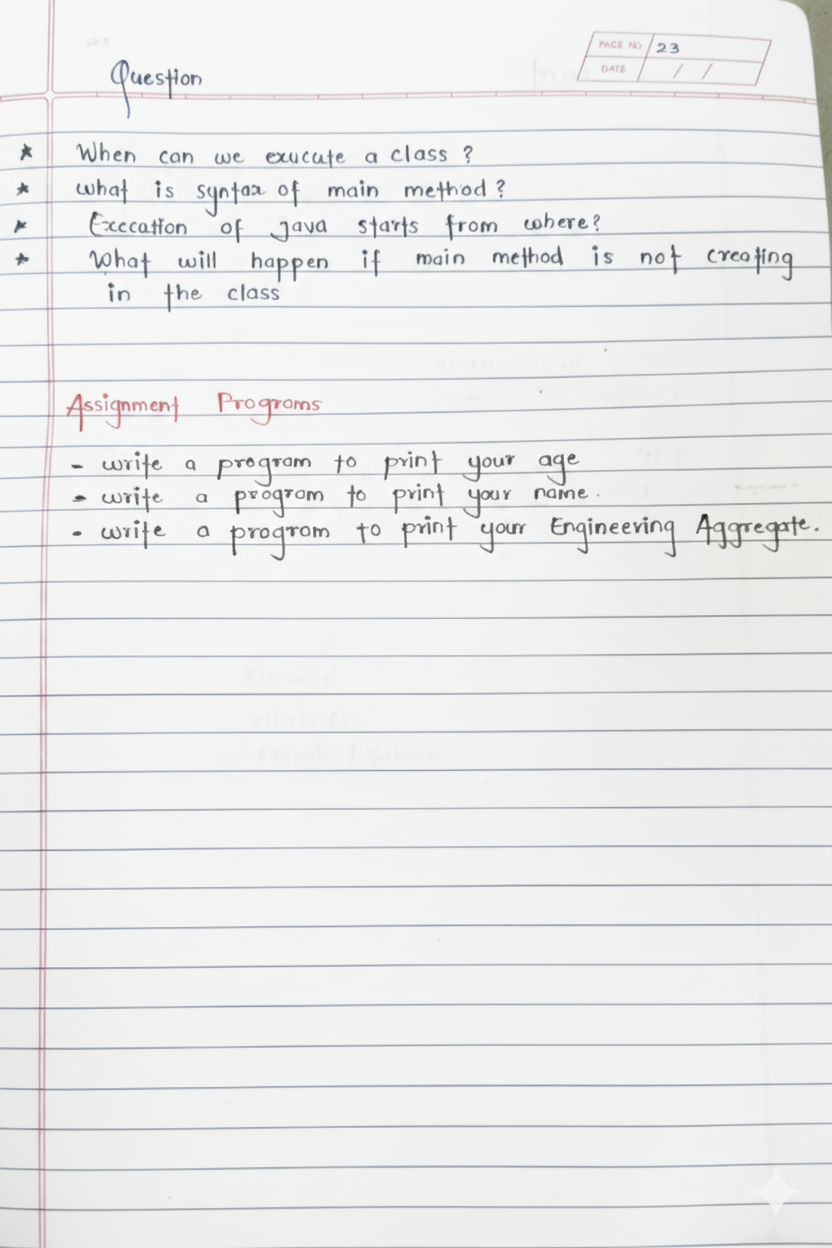 PAGE NO 23
DATE / /
Question
★ When can we exucute a class ?
★ what is syntax of main method ?
★ Exccation of java starts from where?
★ What will happen if main method is not creating
in the class
Assignment Programs
- write a program to print your age
- write a program to print your name.
- write a program to print your Engineering Aggregate.